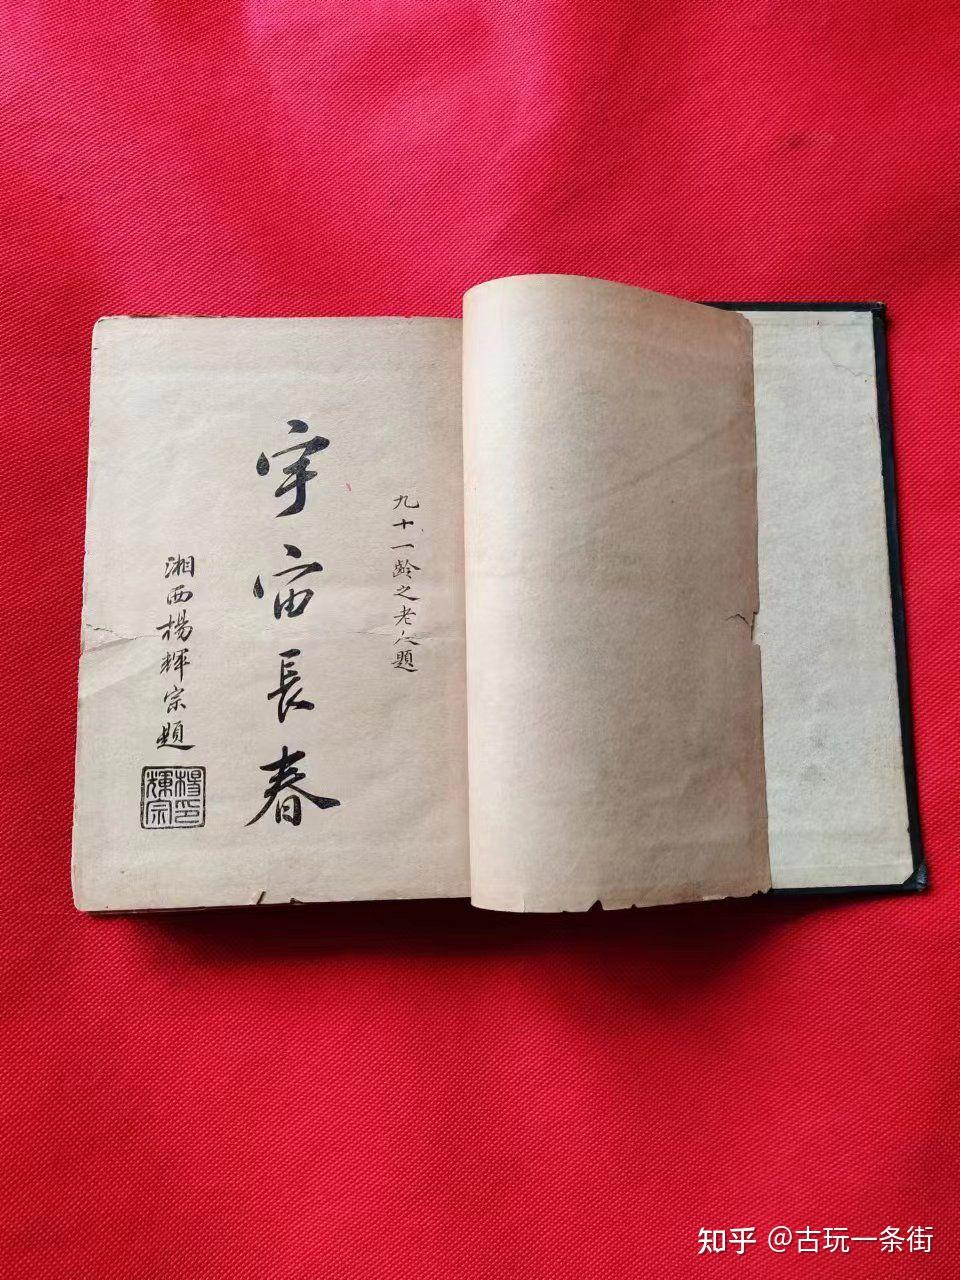 九十一齡之老人題
宇宙長春
湘西楊輝宗題
楊印
輝宗
知乎 @古玩一条街